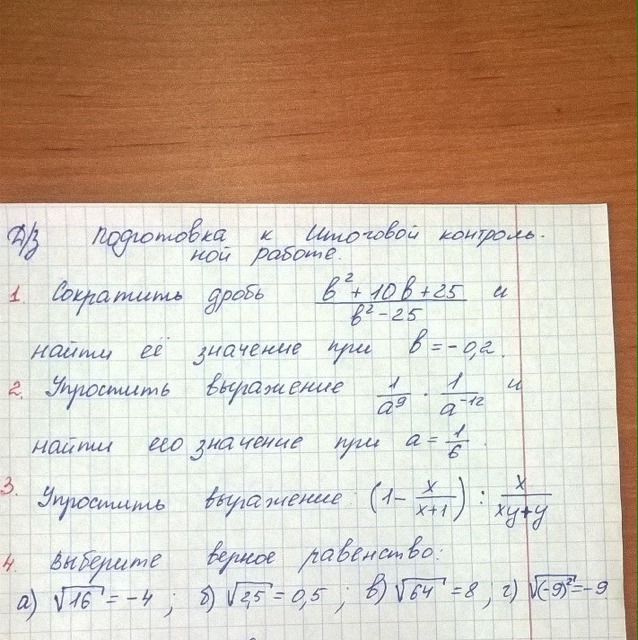 Д/з Подготовка к Итоговой контроль-
ной работе.
1 Сократить дробь (b²+10b+25)/(b²-25) и
найти её значение при b=-0,2.
2. Упростить выражение 1/a⁹ · 1/a⁻¹² и
найти его значение при a=1/6.
3. Упростить выражение: (1-x/(x+1)) : x/(xy+y)
4. Выберите верное равенство:
а) √16=-4; б) √2,5=0,5; в) √64=8, г) √(-9)²=-9